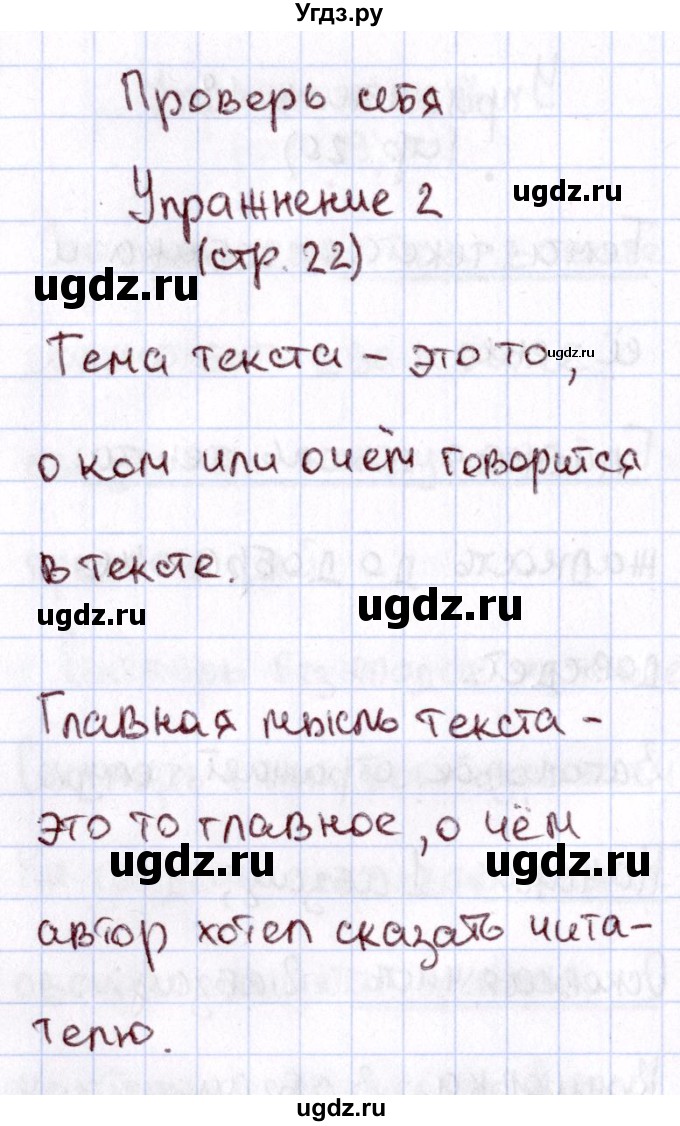 Угдз.ру
Проверь себя
Упражнение 2
ugdz.ru
(стр. 22)
ugdz.ru
Тема текста – это то,
ugdz.ru
о ком или о чём говорится
в тексте.
ugdz.ru
ugdz.ru
Главная мысль текста –
это то главное, о чём
ugdz.ru
ugdz.ru
автор хотел сказать чита–
телю.
ugdz.ru